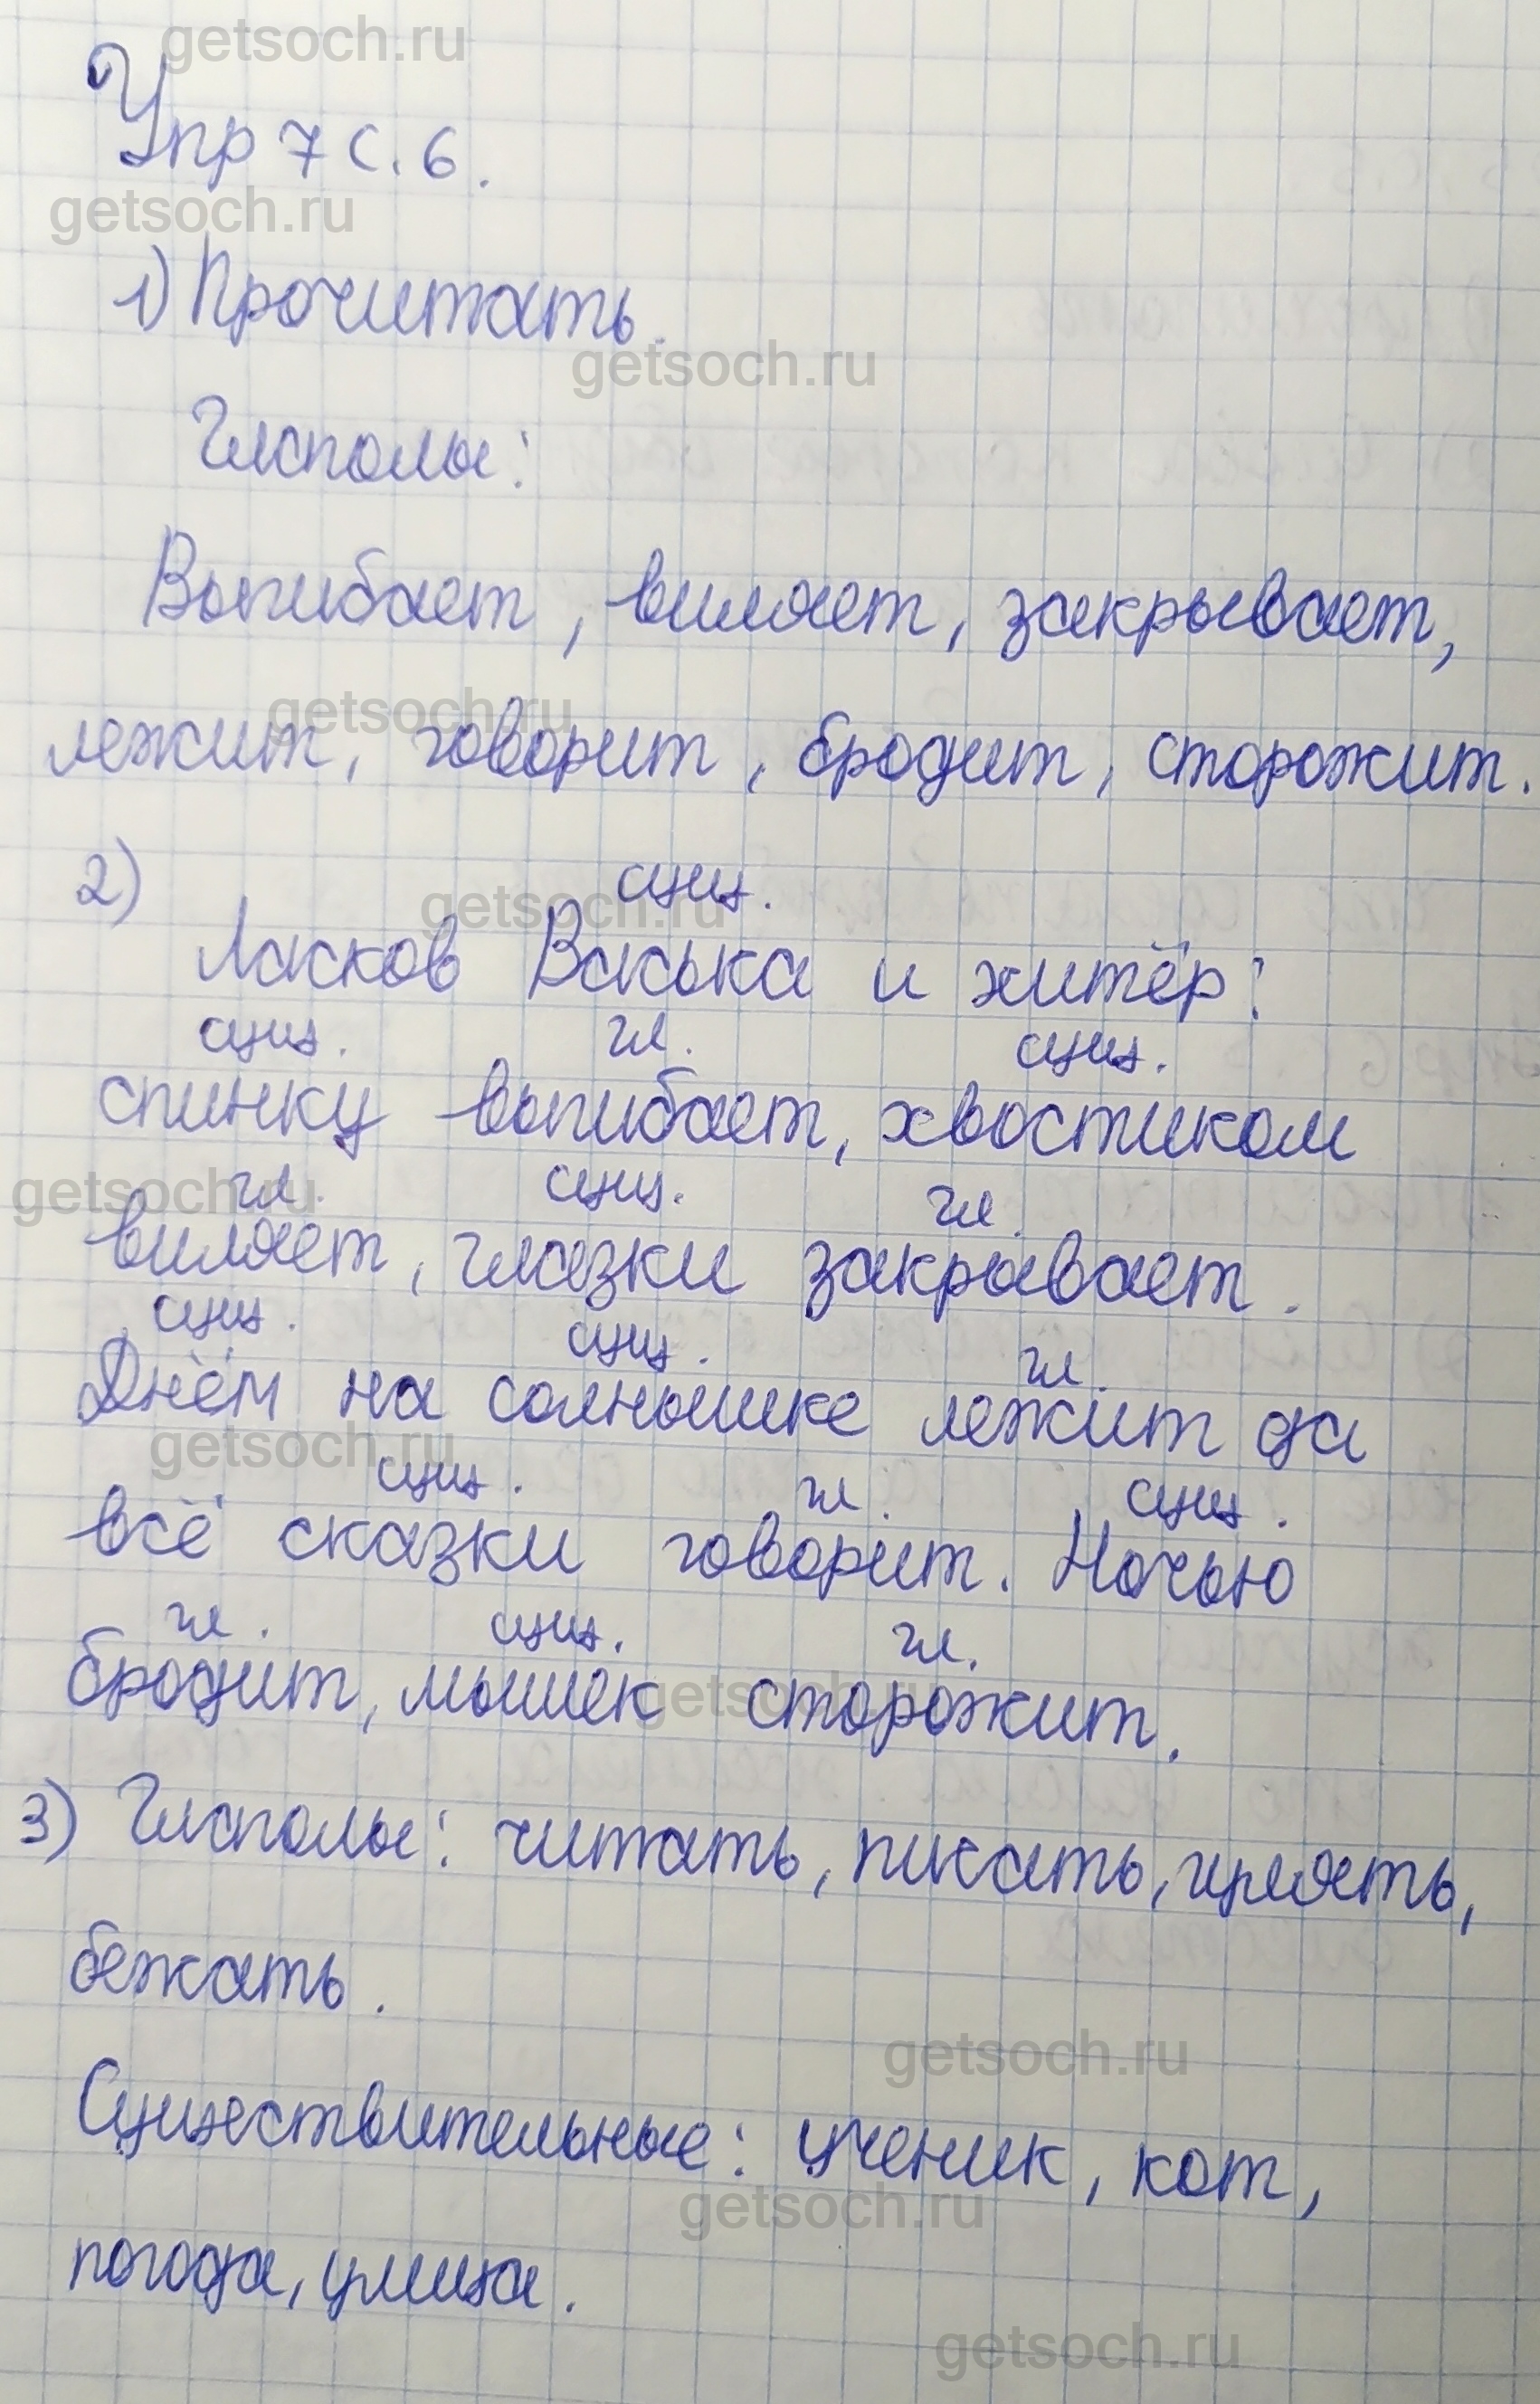 getsoch.ru
Упр 7 с. 6.
getsoch.ru
1) Прочитать.
getsoch.ru
Глаголы:
Выгибает, виляет, закрывает,
getsoch.ru
лежит, говорит, бродит, сторожит.
2) сущ.
getsoch.ru
Ласков Васька и хитёр:
сущ. гл. сущ.
спинку выгибает, хвостиком
getsoch.ru
гл. сущ. гл.
виляет, глазки закрывает.
сущ. сущ. гл.
Днём на солнышке лежит да
getsoch.ru
сущ. гл. сущ.
всё сказки говорит. Ночью
гл. сущ. гл.
бродит, мышек сторожит.
getsoch.ru
3) Глаголы: читать, писать, гулять,
бежать.
getsoch.ru
Существительные: ученик, кот,
getsoch.ru
погода, улица.
getsoch.ru